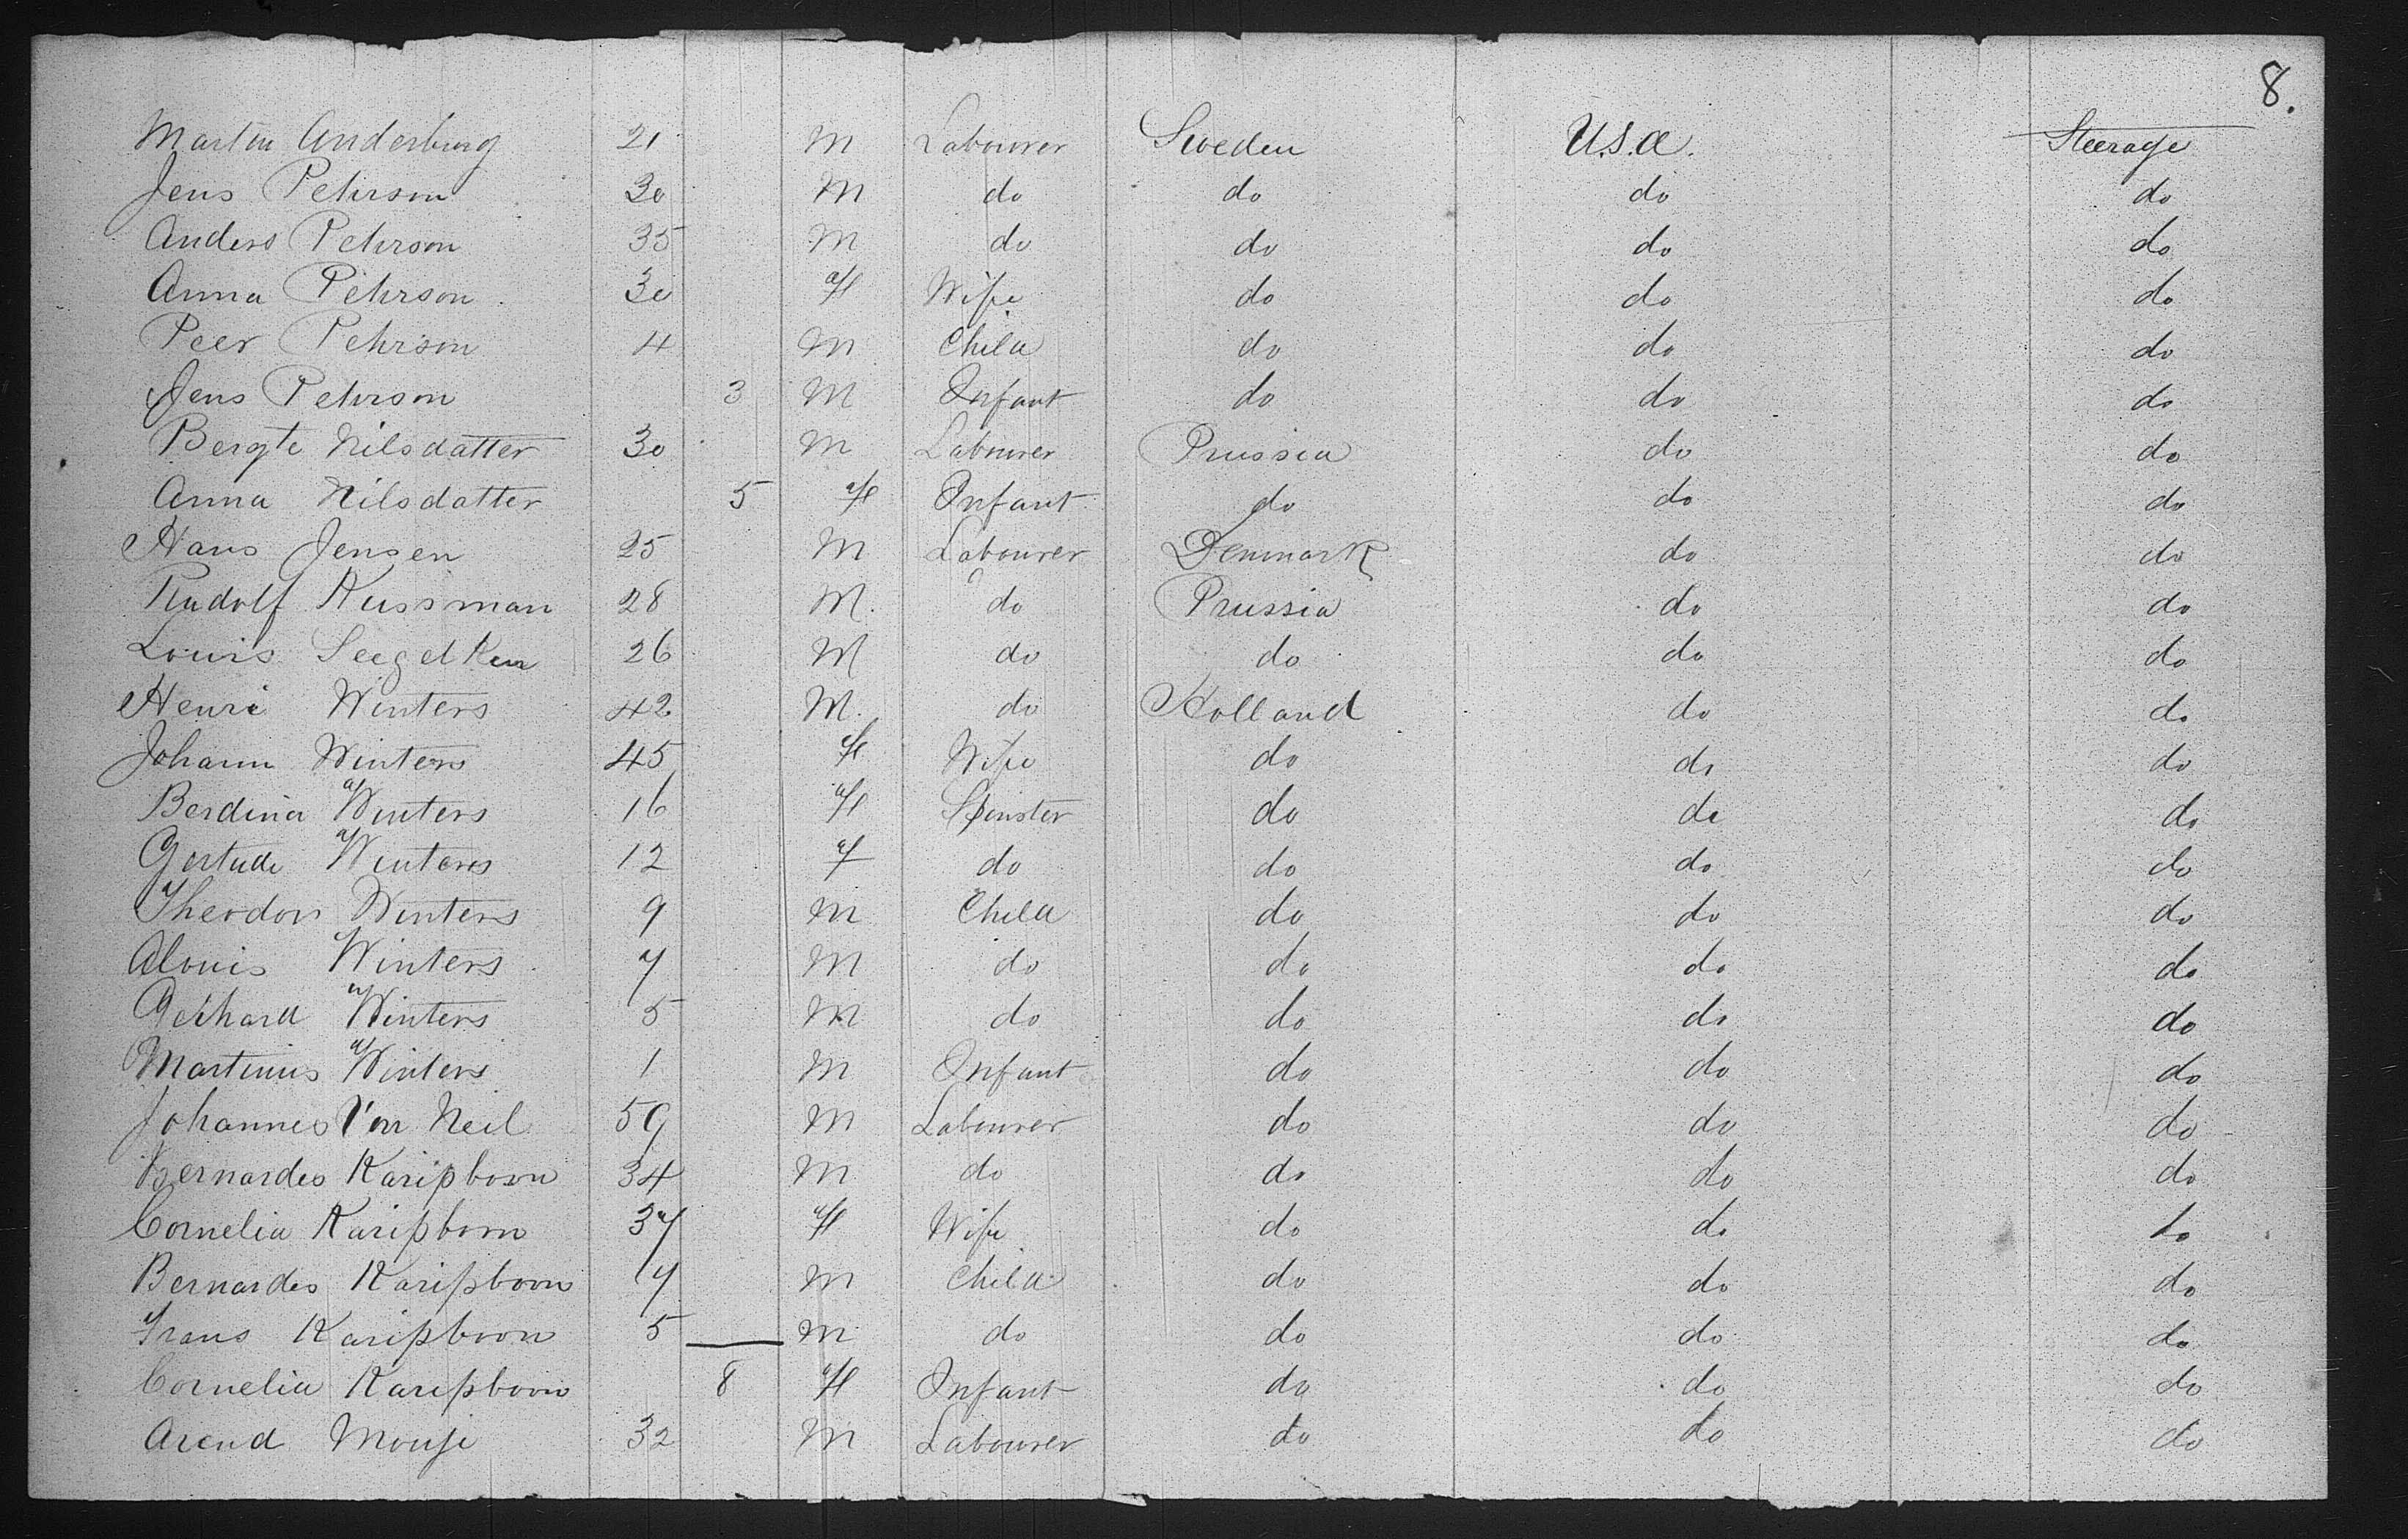 8.
Martin Anderburg 21 M Labourer Sweden U.S.A. Steerage
Jens Pehrson 30 M do do do do
Anders Pehrson 35 M do do do do
Anna Pehrson 30 f Wife do do do
Peer Pehrson 4 M Child do do do
Jens Pehrson 3 M Infant do do do
Bergte Nilsdatter 30 M Labourer Prussia do do
Anna Nilsdatter 5 f Infant do do do
Hans Jensen 25 M Labourer Denmark do do
Rudolf Kussman 28 M. do Prussia do do
Louis Seegelken 26 M do do do do
Henri Winters 42 M. do Holland do do
Johann Winters 45 f Wife do do do
Berdina Winters 16 f Spinster do do do
Gertude Winters 12 f do do do do
Theodor Winters 9 M Child do do do
Alouis Winters 7 M do do do do
Gerhard Winters 5 M do do do do
Martinus Winters 1 M Infant do do do
Johannes Von Neil 59 M Labourer do do do
Bernardes Karipboon 34 M do do do do
Cornelia Karipboon 37 f Wife do do do
Bernardes Karipboon 7 M Child do do do
Frans Karipboon 5 M do do do do
Cornelia Karipboon 8 f Infant do do do
Arend 32 M Labourer do do do